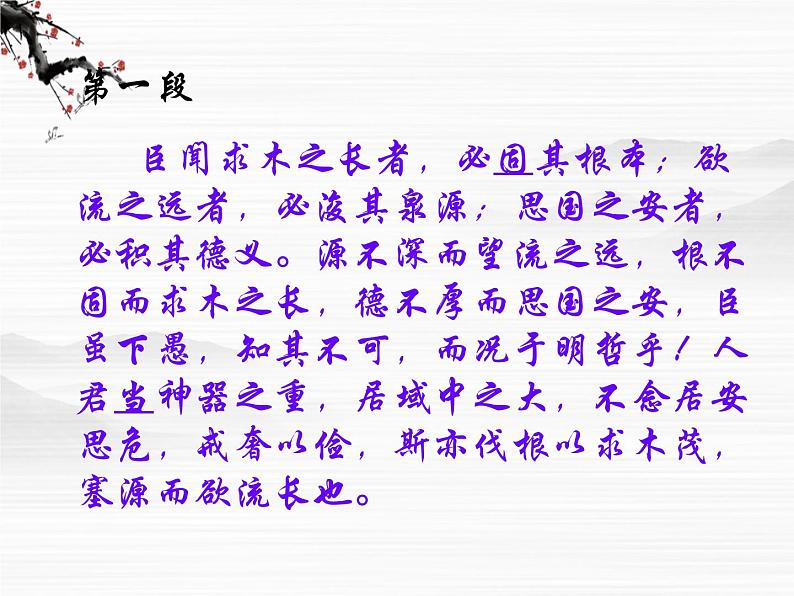 第一段
臣闻求木之长者，必固其根本；欲
流之远者，必浚其泉源；思国之安者，
必积其德义。源不深而望流之远，根不
固而求木之长，德不厚而思国之安，臣
虽下愚，知其不可，而况于明哲乎！人
君当神器之重，居域中之大，不念居安
思危，戒奢以俭，斯亦伐根以求木茂，
塞源而欲流长也。